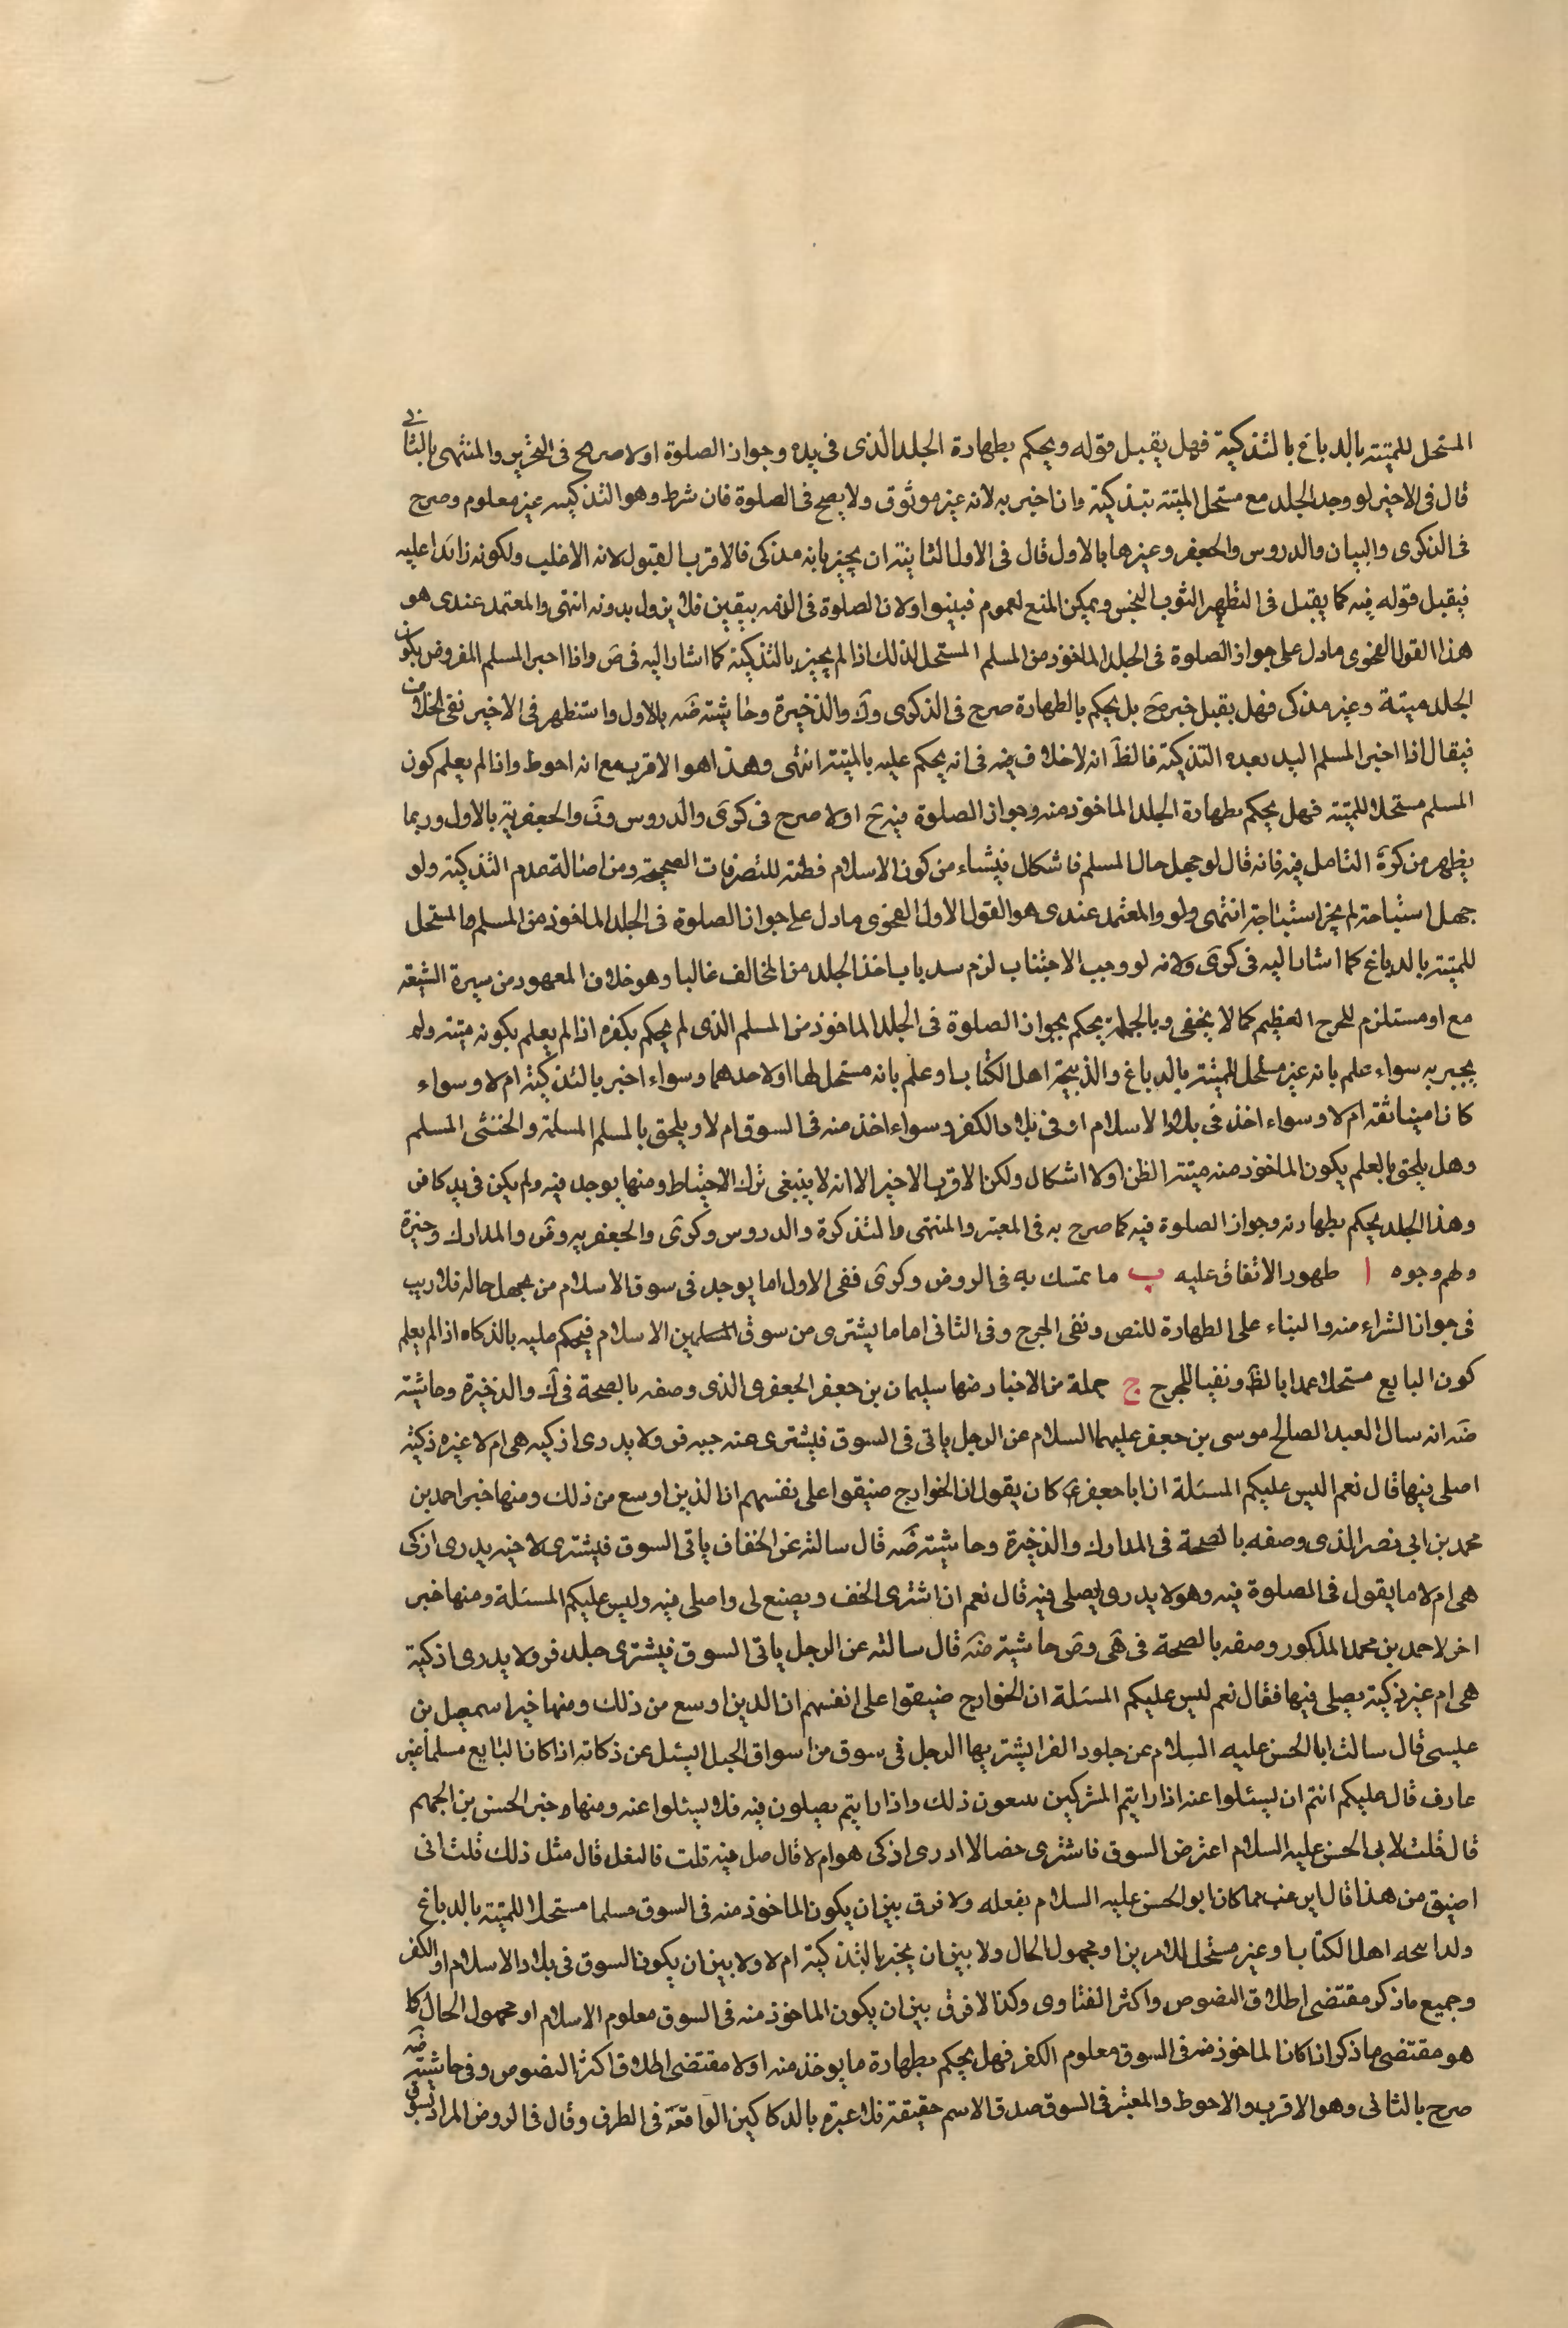 المستحل للميتة بالدباغ بالتذكية فهل يقبل قوله ويحكم بطهارة الجلد الذى فى يده وجواز الصلوة اولا صرح فى التحرير والمنتهى بالثانى
قال فى الاخير لو وجد الجلد مع مستحل الميتة بتذكية وان اخبر به لانه غير موثوق ولا يصح فى الصلوة فان شرط وهو التذكيه غير معلوم وصرح
فى الذكرى والبيان والدروس والجعفر وغيرها بالاول قال فى الاول الثانية ان يخبر بانه مذكى فالاقرب القبول لانه الاغلب ولكونه زائدا عليه
فيقبل قوله فيه كما يقبل فى التطهير الثوب النجس ويمكن المنع لعموم فبينوا ولان الصلوة فى الذمه بيقين فلا يزول بدونه انتهى والمعتمد عندى هو
هذا القول لفحوى مادل على جواز الصلوة فى الجلد الماخوذ من المسلم المستحل لذلك اذا لم يخبر بالتذكية كما اشار اليه فى ض واذا اخبر المسلم المفروض بكون
الجلد ميتة وغير مذكى فهل يقبل خبره ح بل يحكم بالطهارة صرح فى الذكرى وك والذخيرة وحاشيته ضه بالاول واستظهر فى الاخير نفى الخلاف
فيقال اذا اخبر المسلم اليد بعده التذكية فالظ انه لا خلاف فيه فى انه يحكم عليه بالميتة انتهى وهذا هو الاقرب مع انه احوط واذا لم يعلم كون
المسلم مستحلا للميتة فهل يحكم بطهارة الجلد الماخوذ منه وجواز الصلوة فيه ح اولا صرح فى كرى والدروس ون والجعفرية بالاول وربما
يظهر من كرة التامل فيه فانه قال لو جهل حال المسلم فاشكال فيشاء من كون الاسلام فطنه للتصرفات الصحيحة ومن اصالة عدم التذكية ولو
جهل استباحته لم يجز استباحته انتهى ولو والمعتمد عندى هو القول الاول لفحوى مادل على جواز الصلوة فى الجلد الماخوذ من المسلم والمستحل
للميتة بالدباغ كما اشار اليه فى كرى ولانه لو وجب الاجتناب لزم سد باب اخذ الجلد من المخالف غالبا وهو خلاف المعهود من سيرة الشيعه
مع او مستلزم للحرج العظيم كما لا يخفى وبالجملة يحكم بجواز الصلوة فى الجلد الماخوذ من المسلم الذى لم يحكم بكفره اذا لم يعلم بكونه ميتة ولم
يخبر به سواء علم بانه غير مستحل للميتة بالدباغ والذبيحة اهل الكتاب او علم بانه مستحل لها اولاحدهما وسواء اخبر بالتذكية ام لا وسواء
كان امينا ثقة ام لا وسواء اخذ فى بلاد الاسلام او فى بلاد الكفر وسواء اخذ منه فى السوق ام لا ويلحق بالمسلم المسلمة والخنثى المسلم
وهل يلحق بالعلم يكون الماخوذ منه ميتة الظن اولا اشكال ولكن الاقرب الاخير الا انه لا ينبغى ترك الاحتياط ومنها يوجد فيه ولم يكن فى يد كافر
وهذا الجلد يحكم بطهارته وجواز الصلوة فيه كما صرح به فى المعتبر والمنتهى والتذكرة والدروس وكرى والجعفريه وض والمدارك وخيرة
ولهم وجوه ا طهور الاتفاق عليه ب ما تمسك به فى الروض وكرى ففى الاول اما يوجد فى سوق الاسلام من يجهل حاله فلا ريب
فى جواز الشراء منه والبناء على الطهارة للنص ونفى الحرج وفى الثانى اما ما يشترى من سوق المسلمين الاسلام فيحكم عليه بالذكاه اذا لم يعلم
كون البايع مستحلا عملا بالظ ونفيا للحرج ج جملة من الاخبار منها سليمان بن جعفر الجعفرى الذى وصفه بالصحة فى ك والذخيرة وحاشيته
ضه انه سال العبد الصالح موسى بن جعفر عليهما السلام عن الرجل ياتى فى السوق فيشترى منه جبه فرو ولا يدرى اذكيه هى ام لا غيره ذكيه
اصلى فيها قال نعم اليس عليكم المسئلة ان ابا جعفر ع كان يقول ان الخوارج ضيقوا على نفسهم ان الذين اوسع من ذلك ومنها خبر احمد بن
محمد بن ابى نصر الذى وصفه بالصحة فى المدارك والذخيرة وحاشيته ضه قال سالته عن الخفاف ياتى السوق فيشترى لا خيه يدرى ازكى
هى ام لا ما يقول فى الصلوة فيه وهو لا يدرى ايصلى فيه قال نعم ان اشترى الخف ويصنع لى واصلى فيه وليس عليكم المسئلة ومنها خبر
اخر لاحمد بن محمد المذكور وصفه بالصحة فى هى وض حاشيته ضه قال سالته عن الرجل ياتى السوق فيشترى جلد فرو لا يدرى اذكية
هى ام غير ذكية يصلى فيها فقال نعم ليس عليكم المسئلة ان الخوارج ضيقوا على انفسهم ان الدين اوسع من ذلك ومنها خبر اسمعيل بن
عليسى قال سالت ابا الحسن عليه السلام عن جلود الفرا يشتريها الرجل فى سوق من اسواق الجبل ايسئل عن ذكاته اذا كان البايع مسلما غير
عارف قال عليكم انتم ان يسئلوا عنه اذا رايتم المشركين يبيعون ذلك واذا رايتم يصلون فيه فلا يسئلوا عنه ومنها خبر الحسن بن الجهم
قال قلت لابى الحسن عليه السلام اعترض السوق فاشترى خضا لا ادرى اذكى هو ام لا قال صل فيه قلت فالنعل قال مثل ذلك قلت انى
اضيق من هذا قال اين غب مما كان ابو الحسن عليه السلام بفعله ولا فرق بين ان يكون الماخوذ منه فى السوق مسلما مستحلا للميتة بالدباغ
ولذابيحه اهل الكتاب او غير مستحل للامرين او مجهول الحال ولا بين ان يخبر بالتذكية ام لا ولا بين ان يكون السوق فى بلاد الاسلام او الكفر
وجميع ما ذكر مقتضى اطلاق النصوص واكثر الفتاوى وكذا لا فرق بين ان يكون الماخوذ منه فى السوق معلوم الاسلام او مجهول الحال كا
هو مقتضى ما ذكر اذا كان الماخوذ منه فى السوق معلوم الكفر فهل يحكم بطهارة ما يوخذ منه اولا مقتضى اطلاق اكثر النصوص وفى حاشيته ضه
صرح بالثانى وهو الاقرب والاحوط والمعتبر فى السوق صدق الاسم حقيقة فلا عبرة بالدكاكين الواقعة فى الطرق وقال فى الروض المراد بسوق